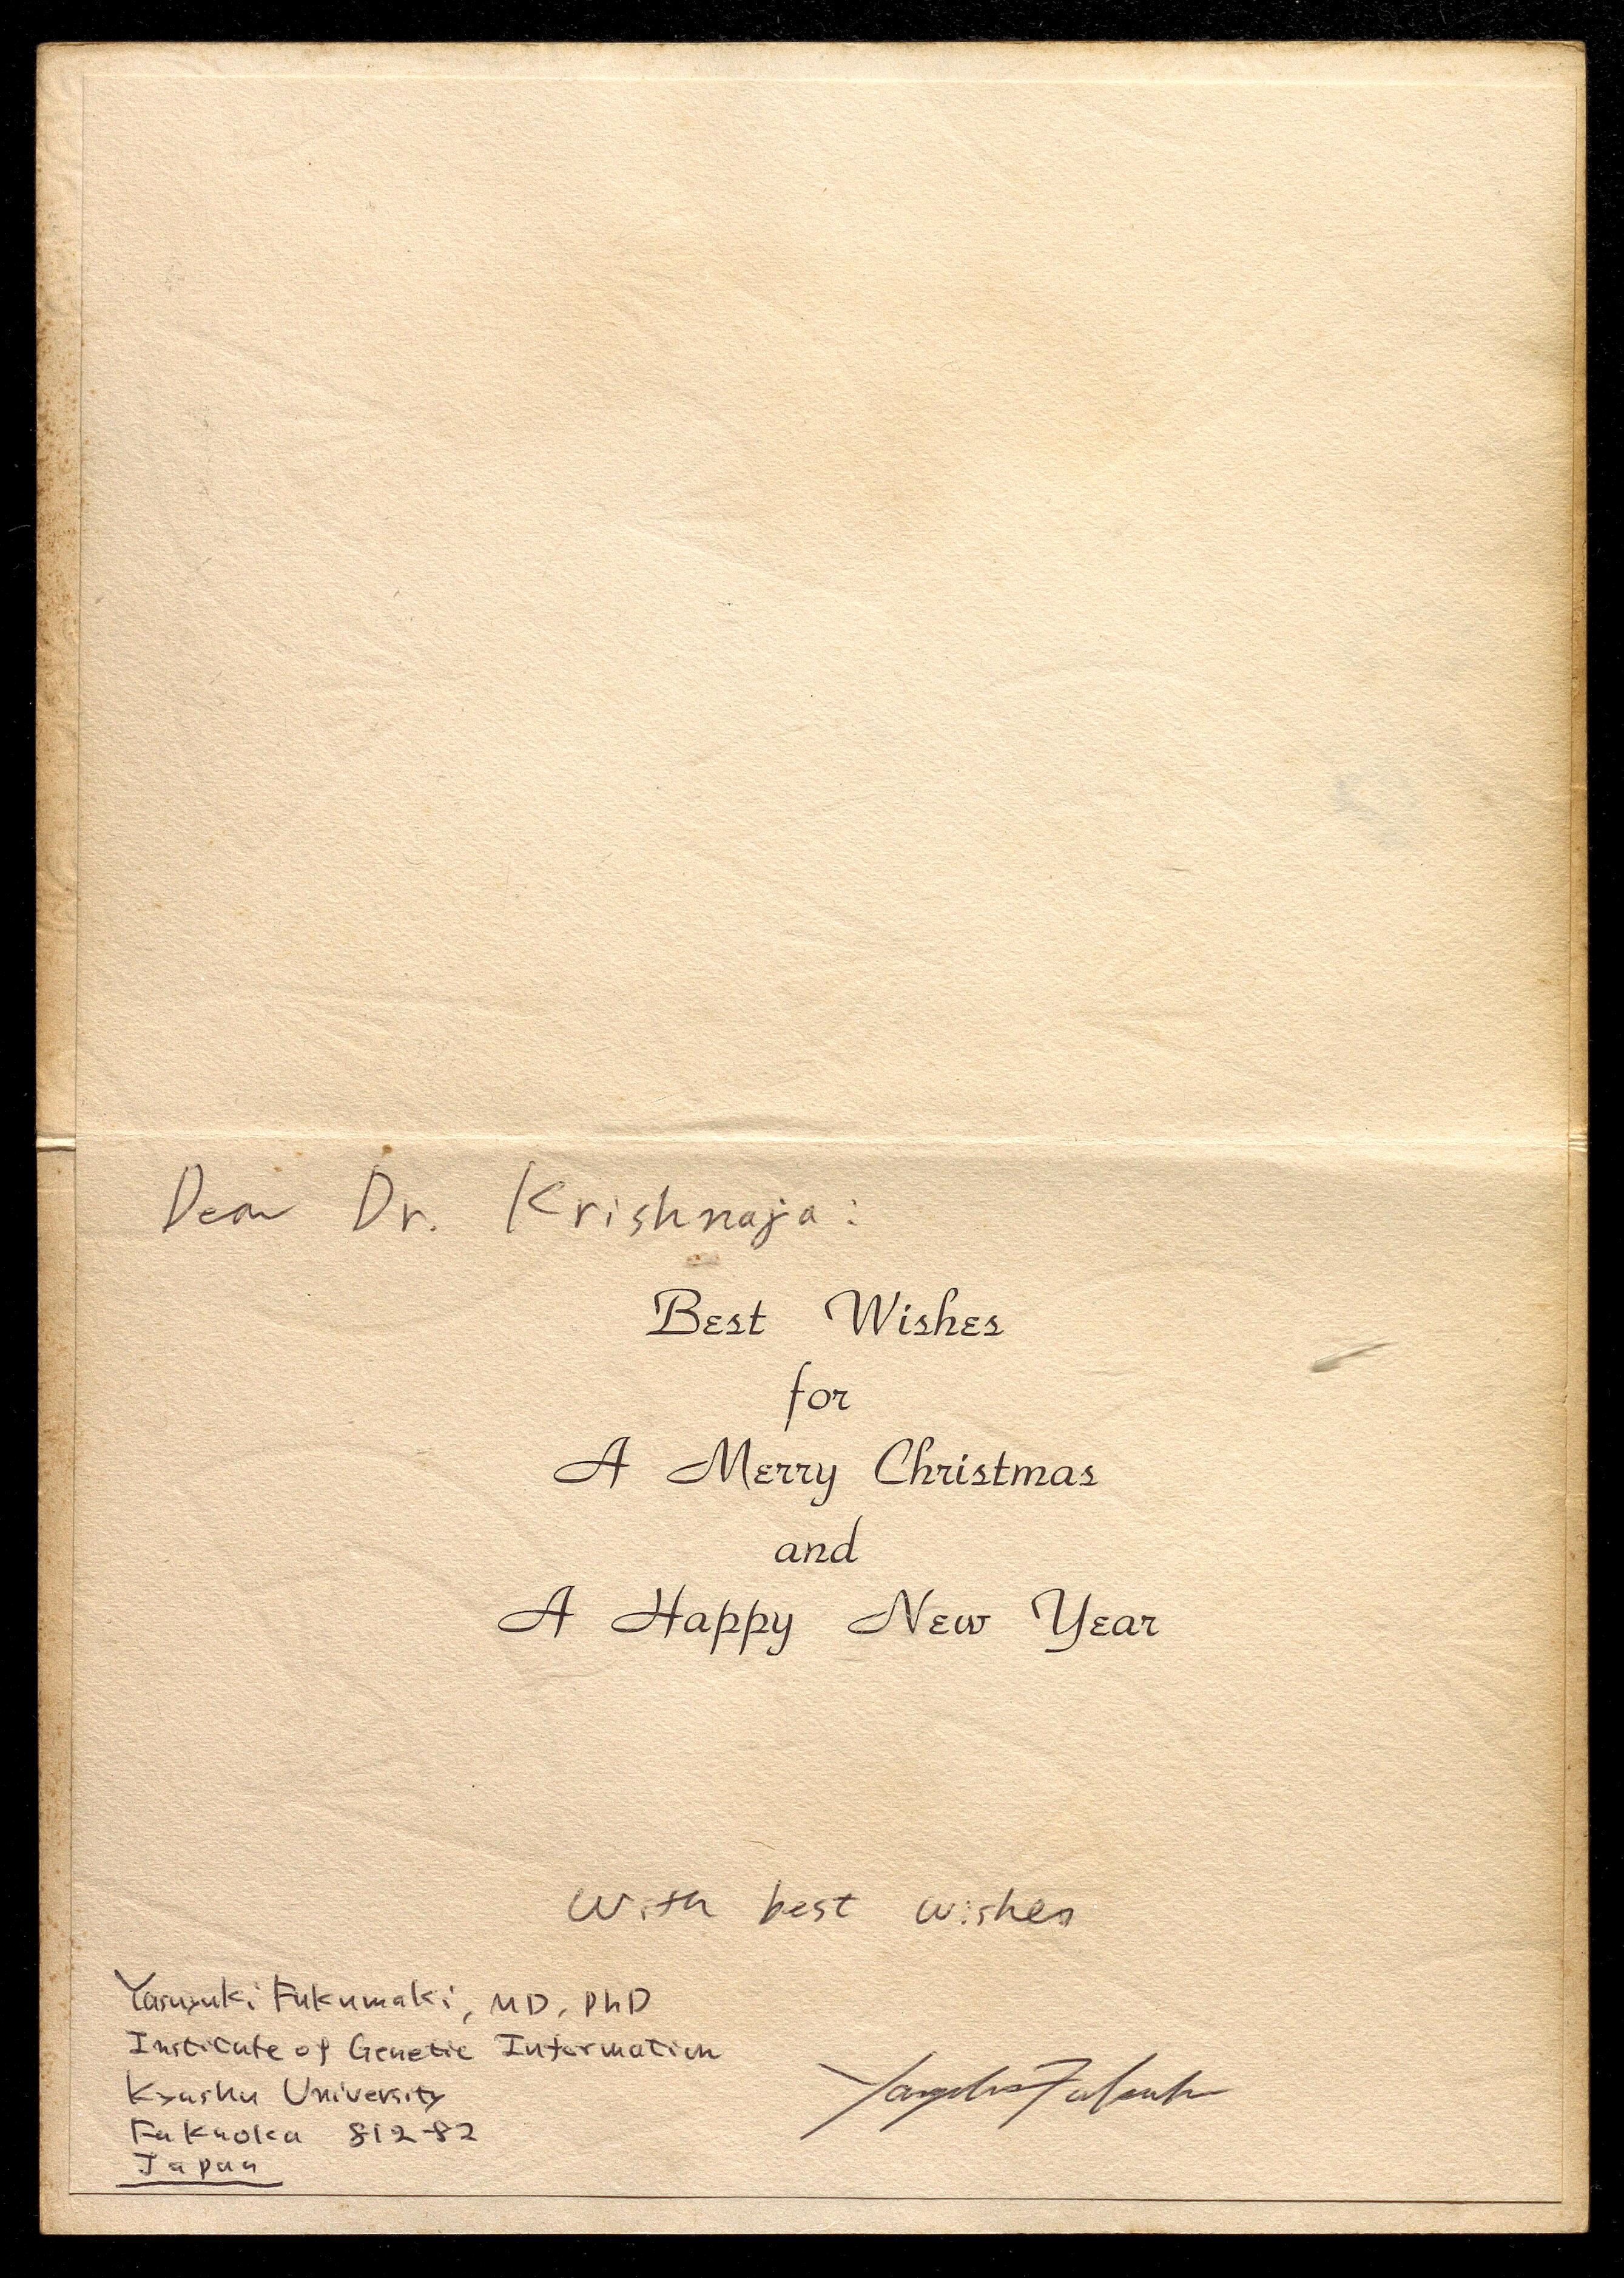 Dear Dr. Krishnaja:
Best Wishes
for
A Merry Christmas
and
A Happy New Year
With best wishes
Yasuyuki Fukumaki, MD, PhD
Institute of Genetic Information
Kyushu University
Fukuoka 812-82
Japan